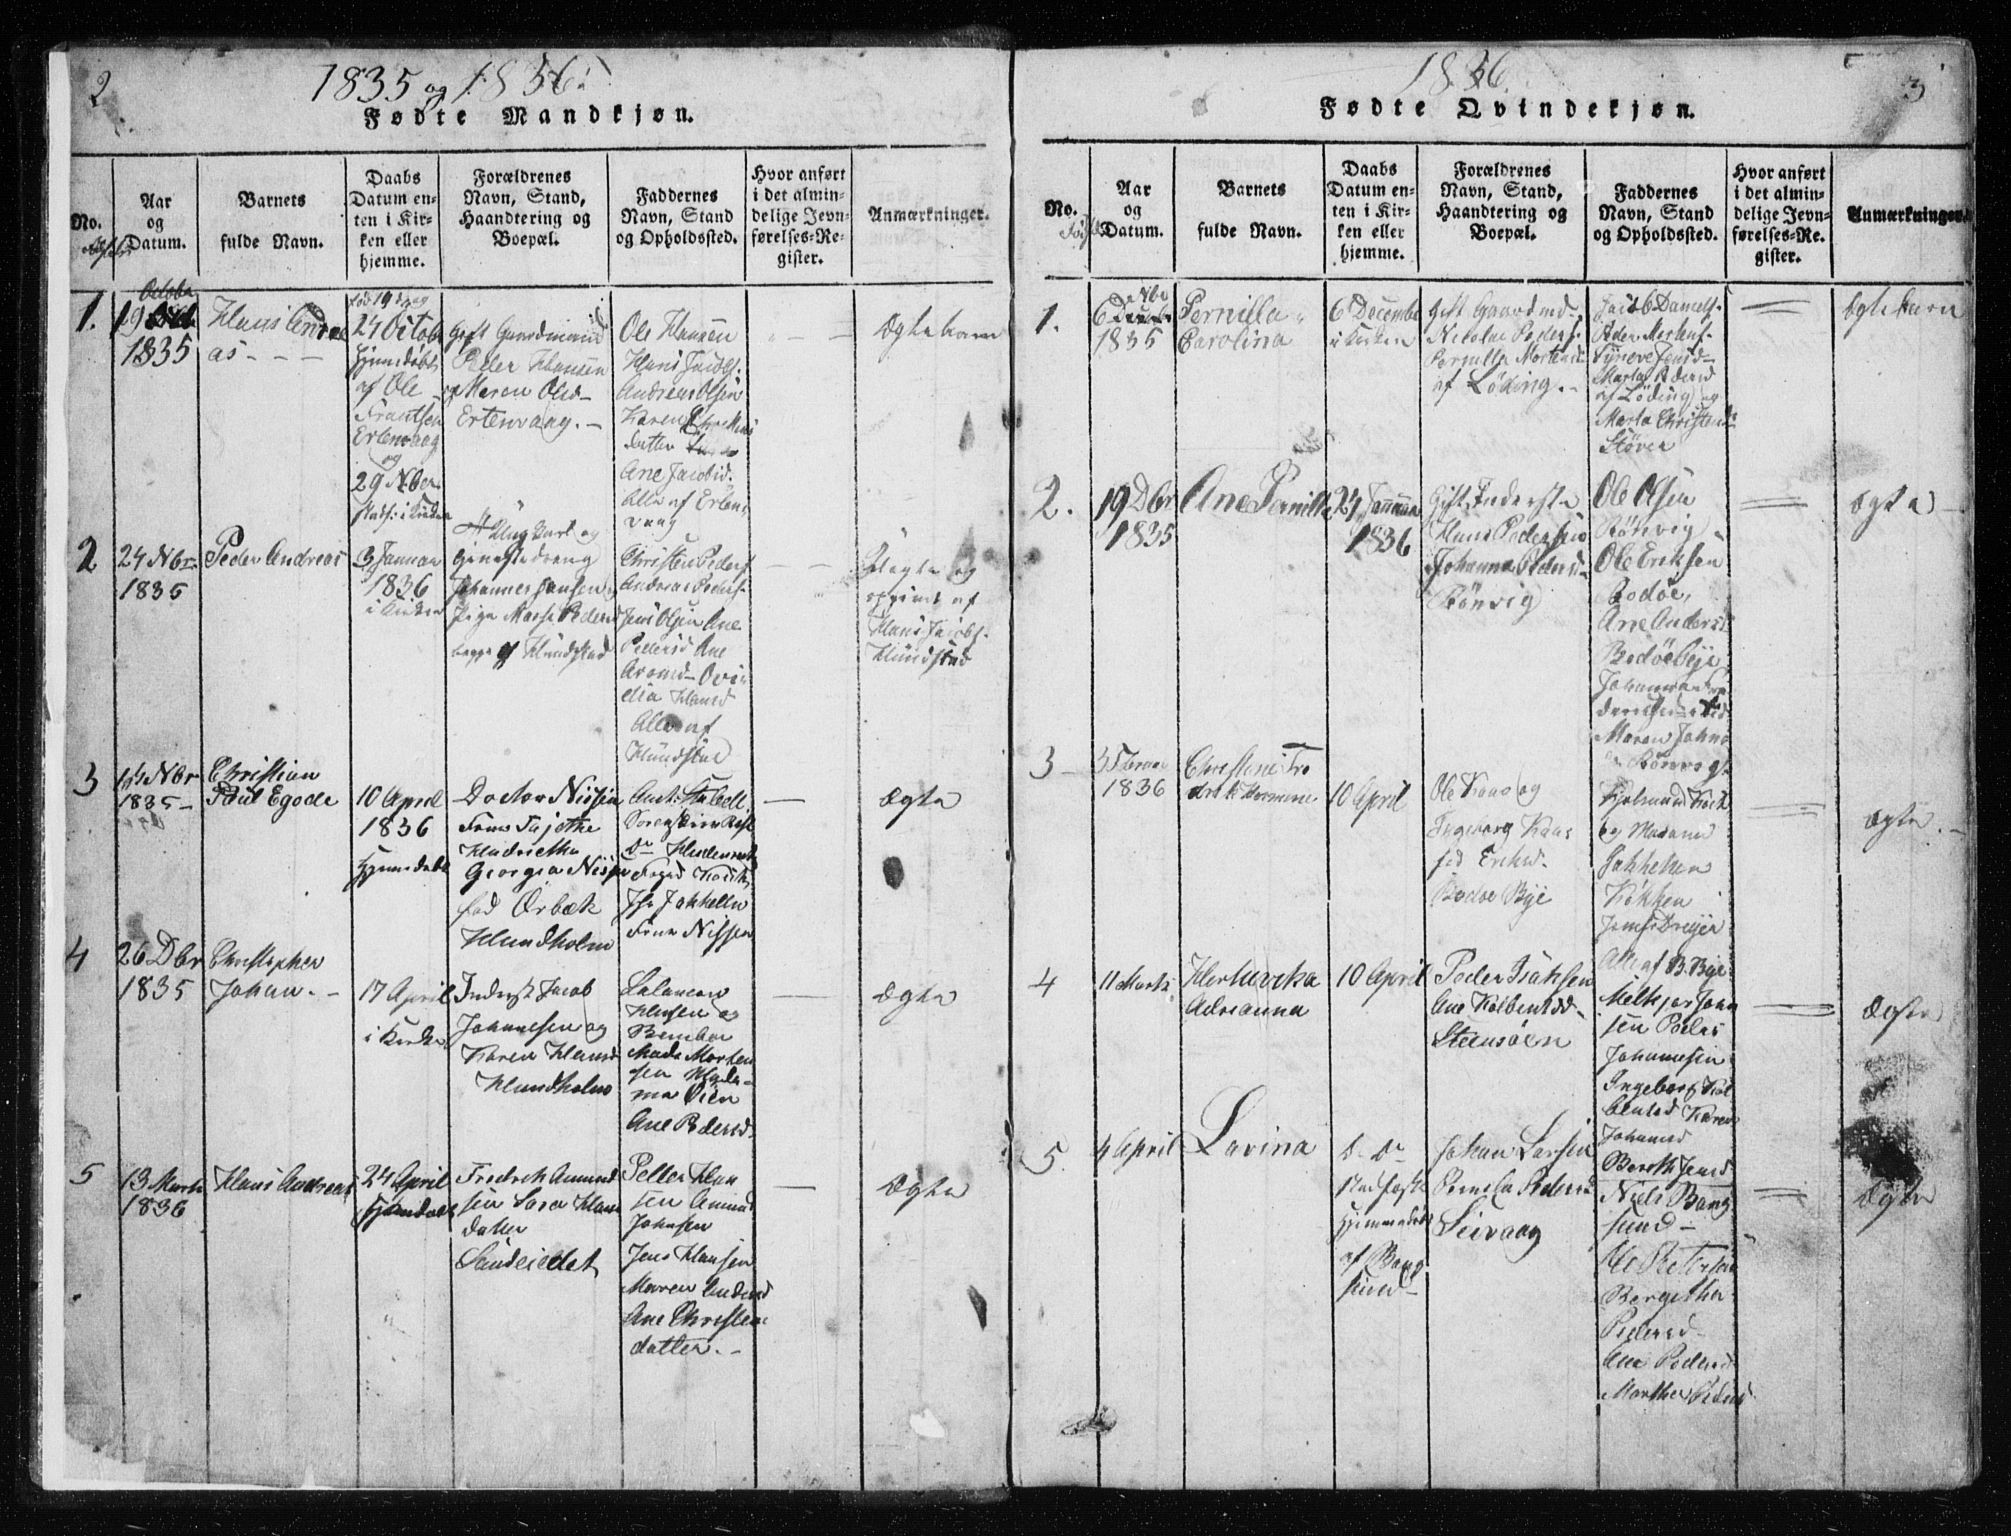 2
1835 og 1836.
Fødte Mandkjøn.
No.
Aar
og
Datum.
Barnets
fulde Navn.
Daabs
Datum en-
ten i Kir-
ken eller
hjemme.
Forældrenes
Navn, Stand,
Haandtering og
Boepæl.
Faddernes
Navn, Stand
og Opholdssted.
Hvor anført
i det almin-
delige Jevn-
førelses-Re-
gister.
Anmærkninger.
1.
October
19
1835
Hans Andre
as - - -
født 19 dag
24 Octob
Hjemmedøbt
af Ole
Frantsen
Ertenvaag
og
29 Nber
i Kirken
Gift Gaardmand
Peder Hansen
og Maren Olsd-
Ertenvaag. -
Ole Hansen
Hans Jacobs.
Andreas Olsen
Karen Christens
datter
Ane Jacobsd.
Alle af Erten
vaag
Ægte barn
2
24 Nbr
1835
Peder Andreas
3 Januar
1836
i Kirken
Ung Karl og
Johannes Jansen
Pige Marse Pedersd
begge af Hundstad
Christen Peders
Andreas Peders-
Jens Olsen Ane
Pedersd Ane
Aronsd- Ovi
dia Hansd
Alle af
Hundstad
Uægte og
af
Hans Jacobs.
Hundstad
3
Nbr
1835 -
Christian
Poul Egede
10 April
1836
Hjemmedøbt
Doctor Nissen
Frue
Georgia Nissen
fød Ørbæk
Hundholm
Foged Koch
Jfr Jakhelln
Frue Nissen
Ægte
4
26 Dbr
1835
Christopher
Johan. -
17 April
i Kirken
Inderst Jacob
Johannesen og
Karen Hansd
Hundholm
Hansen og
Mads Morten
sen
Ane Pedersd.
Ægte
5
13 Marts
1836
Hans Andreas
24 April
Hjemdøbt
Fredrik Amund
sen Sara Hans
datter
Sandeiedet
Petter Han
sen Amund
Johnsen
Jens Hansen
Maren Andersd
Ane Christens
datter. -
Ægte
3
1836
Fødte Qvindekjøn.
No.
Aar
og
Datum.
Barnets
fulde Navn.
Daabs
Datum en-
ten i Kir-
ken eller
hjemme.
Forældrenes
Navn, Stand,
Haandtering og
Boepæl.
Faddernes
Navn, Stand
og Opholdssted.
Hvor anført
i det almin-
delige Jevn-
førelses-Re-
gister.
Anmærkninger.
1.
6
1835
Pernilla
Carolina
6 Decembe
i Kirken
Gift Gaardmd.
Nicolai Peders.
Pernilla Mortensd
af Løding. -
Jacob Daniels-
Peder Mortens-
Synneve Jensd-
Marta Pedersd
af Løding og
Marta Christensd
Støver
Ægte barn
2.
19 Dbr
1835
Ane Pernilla
24 Januar
1836
Gift Inderste
Hans Pedersen
Johanna Pedersd-
Rønvig
Ole Olsen
Rønvig
Ole Eriksen
Bodøe,
Ane Anders
Bodøe Bye,
Maren Johns
Rønvig
Ægte -
3
3 Febuar
1836
Christine Fre
drik Hermine
10 April
Ole Kaas og
Ingeborg Kaas
fød Eriksd.
Bodøe Bye
Koch
og Madame
Jakhelln
Jomf. Dreyer
Alle af B. Bye
Ægte. -
4
11 Marts
Hertuvika
Adrianna
10 April
Peder Isaksen
Ane Kolbensd-
Steensøen
Melkjor John
sen Peder
Johannesen
Ingeborg Kol
bensd Karen
Johansd
Bereth Jensd
Ægte
5
4 April
Lovina
Hjemmedøbt
af Bang
sund -
Johan Larsen
Pernila Pedersd
Seivaag
Niels Bang
sund -
Ole Petersen
Bergithe
Pedersd-
Ane Pedersd
Marthe Pedersd
Ægte